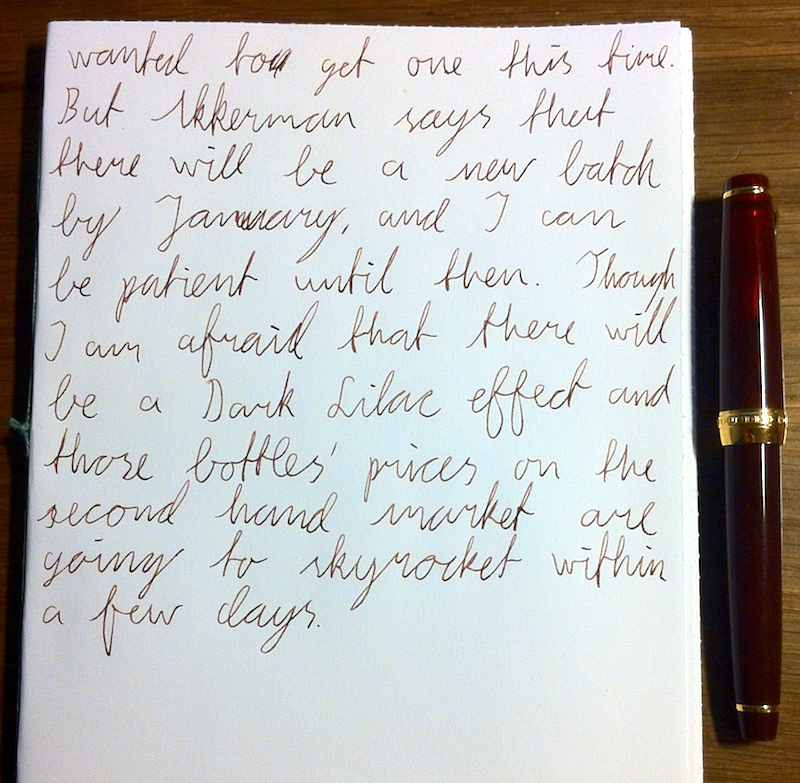 wanted to get one this time.
But Akkerman says that
there will be a new batch
by January, and I can
be patient until then. Though
I am afraid that there will
be a Dark Lilac effect and
those bottles' prices on the
second hand market are
going to skyrocket within
a few days.